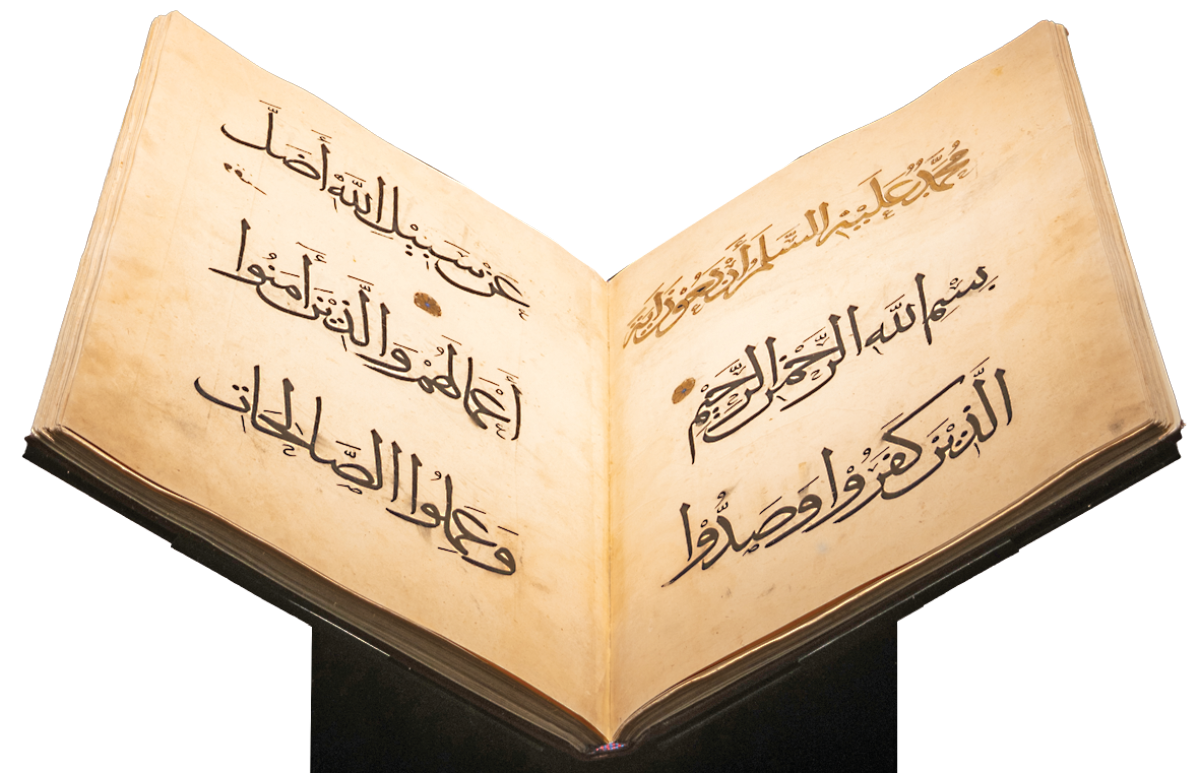 مُحَمَّدٍ عَلَيْهِ السَّلَمُ أَرْبَعُوْنَ اٰيَةً
بِسْمِ اللّٰهِ الرَّحْمٰنِ الرَّحِيْمِ
الَّذِيْنَ كَفَرُوْا وَصَدُّوْا
عَنْ سَبِيْلِ اللّٰهِ أَضَلَّ
أَعْمَالَهُمْ وَالَّذِيْنَ أٰمَنُوا
وَعَمِلُوا الصَّالِحَاتِ